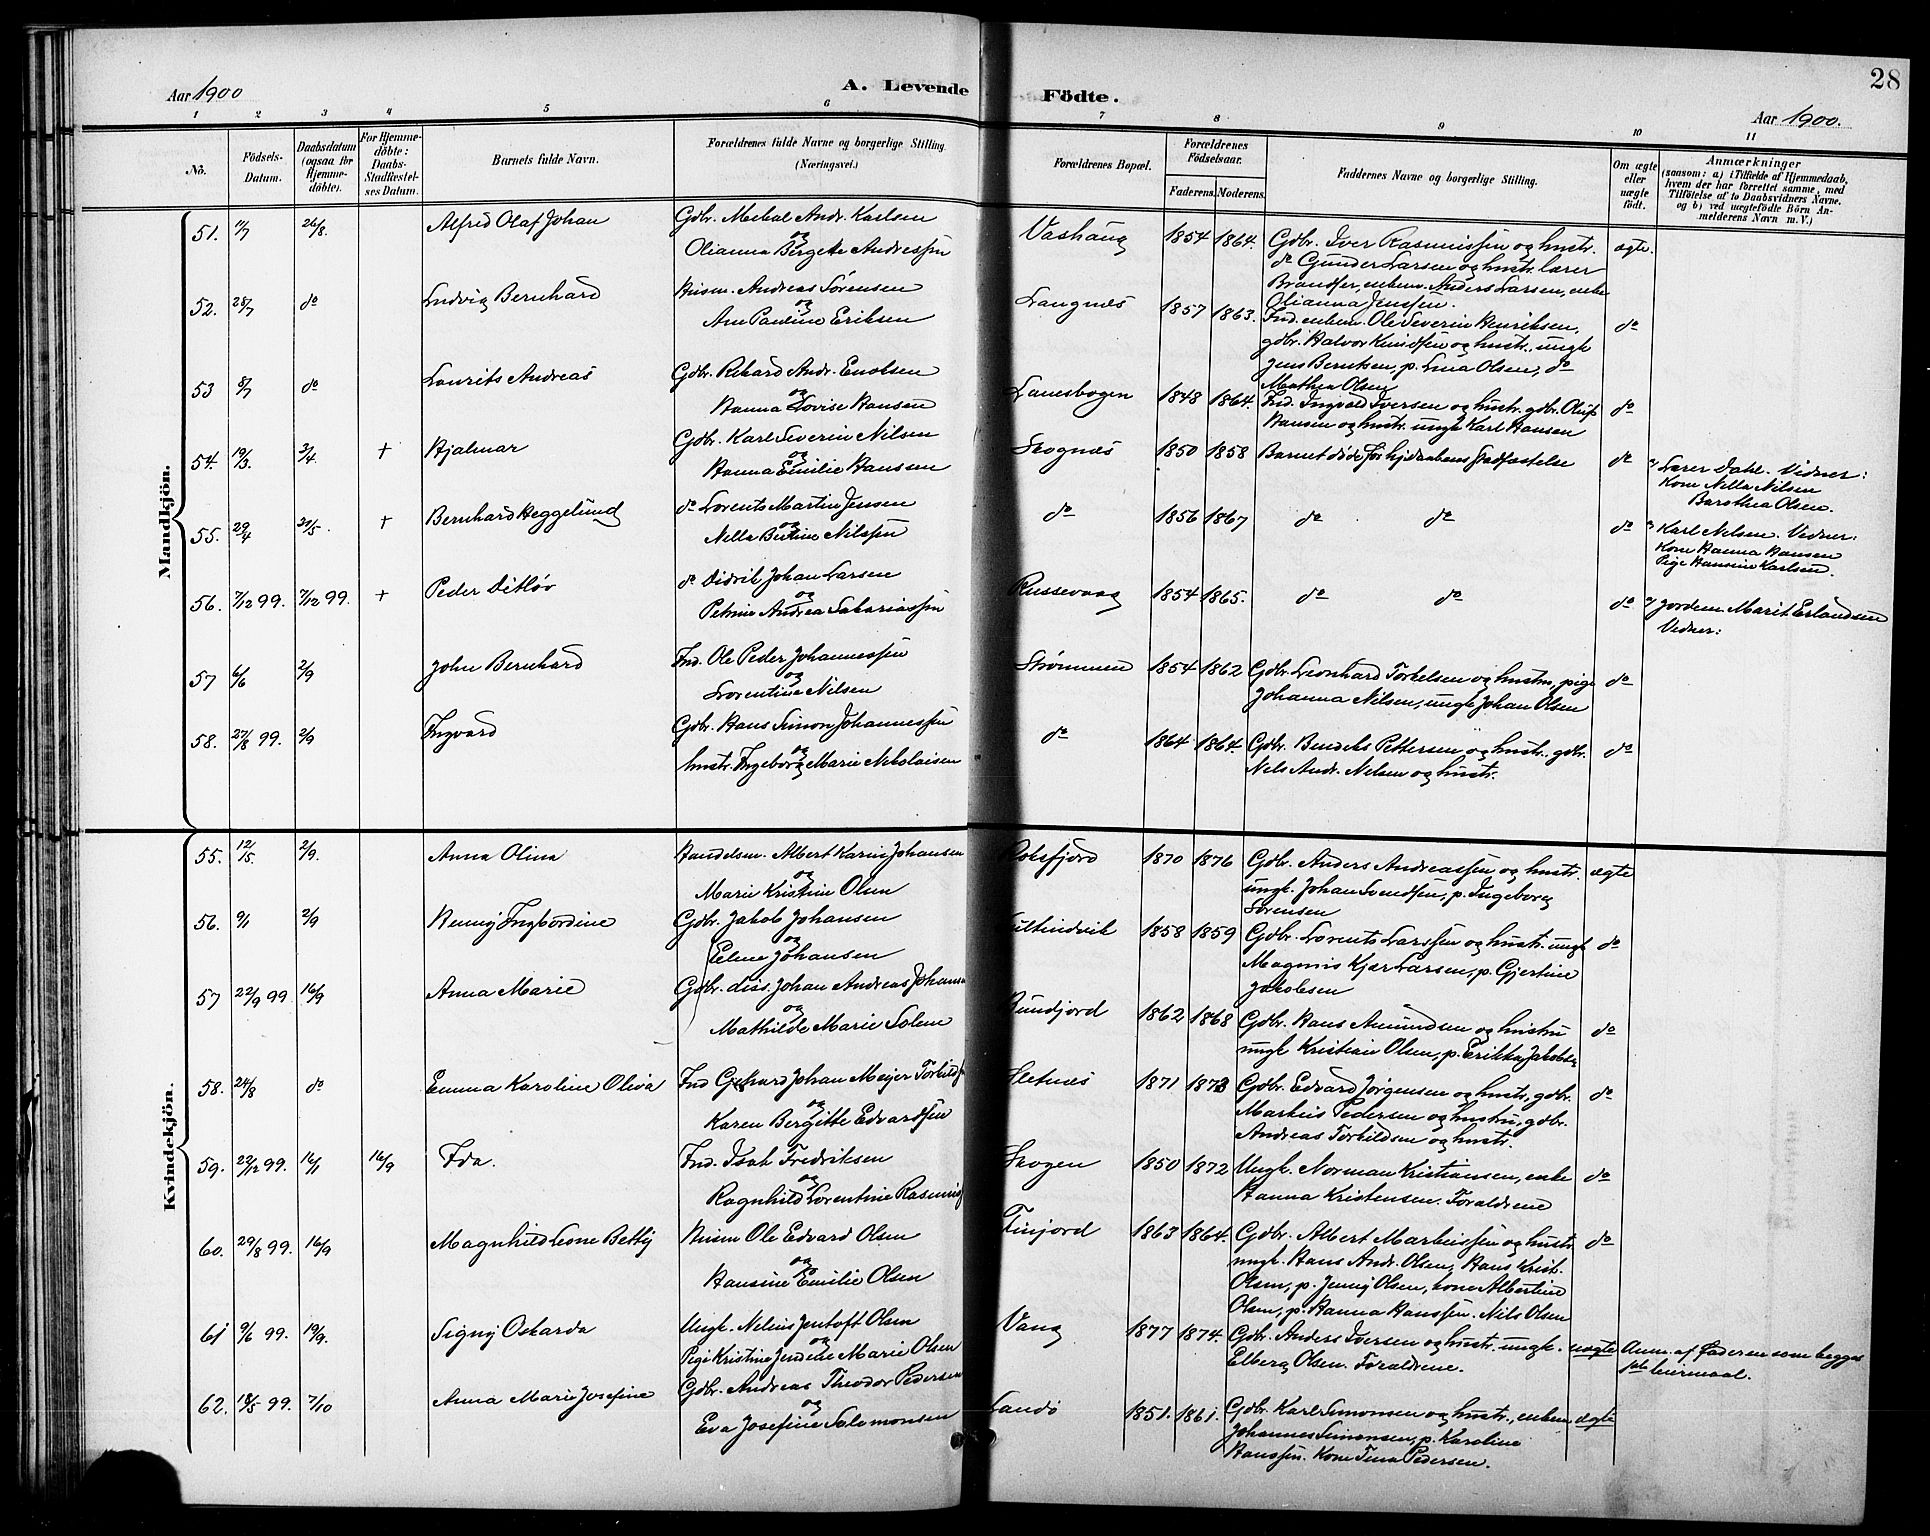 28
Aar 1900
A. Levende Födte.
Aar 1900.
1 2 3 4 5 6 7 8 9 10 11
No.
Födsels-Datum.
Daabsdatum (ogsaa for Hjemmedöbte).
For Hjemmedöbte: Daabs-Stadfæstelses Datum.
Barnets fulde Navn.
Forældrenes fulde Navne og borgerlige Stilling. (Næringsvei.)
Forældrenes Bopæl.
Forældrenes Födselsaar.
Faderens. Moderens.
Faddernes Navne og borgerlige Stilling.
Om ægte eller uægte födt.
Anmærkninger
(saasom: a) i Tilfælde af Hjemmedaab, hvem der har forrettet samme, med Tilföielse af to Daabsvidners Navne, og b) ved uægtefödte Börn Anmelderens Navn m. V.)
Mandkjön.
51. 26/8. Alfred Olaf Johan Gdbr. Mekal Andr. Karlsen 1854 1864. Gdbr. Iver Rasmussen og hustr. ægte.
og
Olianna Bergete Andreassen do Gunder Larsen og hustr. lærer
52. 28/7 do Ludvig Bernhard Husm. Andreas Sörensen Langnes 1857 1863. Anders Larsen, enke
og Olianna Jenssen.
Ane Pauline Eriksen Ind. enkem. Ole Severin Henriksen, do
gdbr. Halvor Knudsen og hustr., ungk.
Jens Berntsen, p. Lina Olsen, do
53 8/7 do Laurits Andreas Gdbr. Rikard Andr. Enoksen Lanesbogen 1848 1864. Mathea Olsen
og Ind. Ingvald Iversen og hustr. gdbr. Oluf do
Hanna Lovise Hansen Hansen og hustr. ungk. Karl Hansen
54. 19/3. 3/4. + Hjalmar Gdbr. Karl Severin Nilsen Skognes 1850 1858 Barnet döde för hjdaabens Stadfæstelse do Lærer Dahl. Vidner:
og Kone Nella Nilsen
Hanna Emilie Hansen Barothea Olsen.
55. 29/4 + Bernhard Heggelund do Lorents Martin Jensen do 1856 1867 do do do Karl Nilsen. Vidner:
og Kone Hanna Hansen
Nella Bertine Nilssen Pige Hansine Karlsen.
56. 7/12 99. 7/12 99. + Peder Ditløv do Didrik Johan Larsen Russevaag 1854 1865. do do do Jordem. Marit Erlandsen
og Vidner:
Petrine Andrea Sakariassen
57 6/6 2/9 John Bernhard Ind. Ole Peder Johannessen Strømmen 1854 1862 Gdbr. Leonhard Torkelsen og hustru, pige do
og Johanna Nilsen, ungk. Johan Olsen
Lorentine Nilsen
58. 27/8 99. 2/9 Ingvard Gdbr. Hans Simon Johannessen do 1864. 1864. Gdbr. Bendeks Pettersen og hustr., gdbr. do
og Nils Andr. Nilsen og hustr.
hustr. Ingeborg Marie Nikolaisen
Kvindekjön.
55. 12/5. 2/9. Anna Olina Handelsm. Albert Karin Johansen 1870 1876 Gdbr. Anders Andreassen og hustr. ægte
og ungk. Johan Svendsen, p. Ingeborg
Marie Kristine Olsen Sørensen
56. 9/1 2/9 Gdbr. Jakob Johansen 1858 1859 Gdbr. Lorents Larssen og hustr. ungk. do
og Magnus Kjær Larsen, p. Gjertine
Eline Johansen Jakobsen
57 22/9 99. 16/9 Anna Marie Gdbr. diss. Johan Andreas Johans 1862 1868 Gdbr. Hans Amundsen og hustru do
og ungk. Kristian Olsen, p. Erikka Jakobs.
Mathilde Marie Solem
58. 24/8 do Emma Karoline Oliva Ind Gerhard Johan Meijer Torkilds Sletnes 1871 1873 Gdbr. Edvard Jørgensen og hustr., gdbr. do
og Markus Pedersen og hustru, gdbr.
Karen Bergitte Edvardsen Andreas Torkildsen og hustr.
59. 22/12 99. 16/1 16/9 Ida. Ind. Isak Fredriksen Skogen 1850 1872 Ungk. Norman Kristiansen, enke do
og Hanna Kristensen. Forældrene
Ragnhild Lorentine Rasmus
60. 29/8 99. 16/9 Magnhild Leone Betty Husm Ole Edvard Olsen Finjord 1863 1864. Gdbr. Albert Markussen og hustr. do
og ungk. Hans Andr. Olsen, Hans Krist.
Hansine Emilie Olsen Olsen, p. Jenny Olsen, kone Albertine
Olsen, p. Hanna Hanssen. Nils Olsen
61 9/6 99. 19/9. Signy Oskarda Ungk. Nelius Jentoft Olsen Vang 1877 1874. Gdbr. Anders Iversen og hustr. ungk. uægte Anm. af Faderen som begges
og Elberg Olsen. Forældrene. 1ste leiermaal.
Pige Kristine Jendine Marie Olsen
62. 18/5 99. 7/10 Anna Marie Josefine Gdbr. Andreas Theodor Pedersen Sandö 1851. 1861. Gdbr. Karl Simonsen og hustr., enkem ægte
og Johannes Simonsen, p. Karoline
Eva Josefine Salamonsen Hanssen. Kone Tina Pedersen.